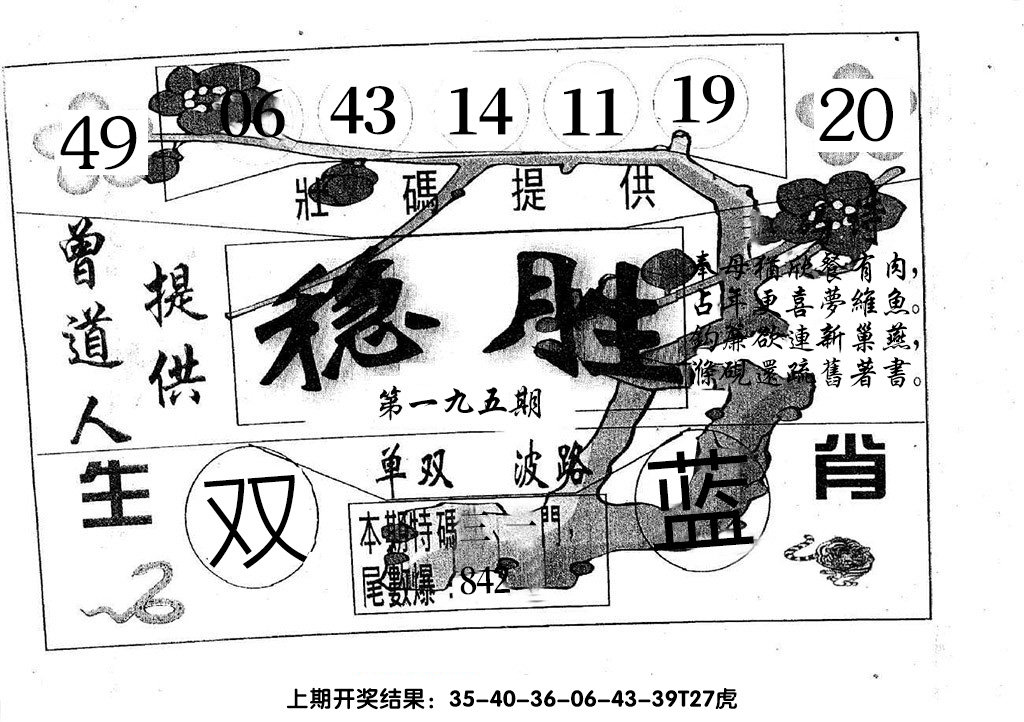 49 06 43 14 11 19 20
壯碼提供
曾道人
提供
穩胜
第一九五期
奉母猶欣餐有肉，
占年更喜夢維魚。
鈎簾欲連新巢燕，
滌硯還疏舊著書。
单双 波路
生肖
双
蓝
本期特碼三、一門,
尾數爆：842
上期开奖结果：35-40-36-06-43-39T27虎